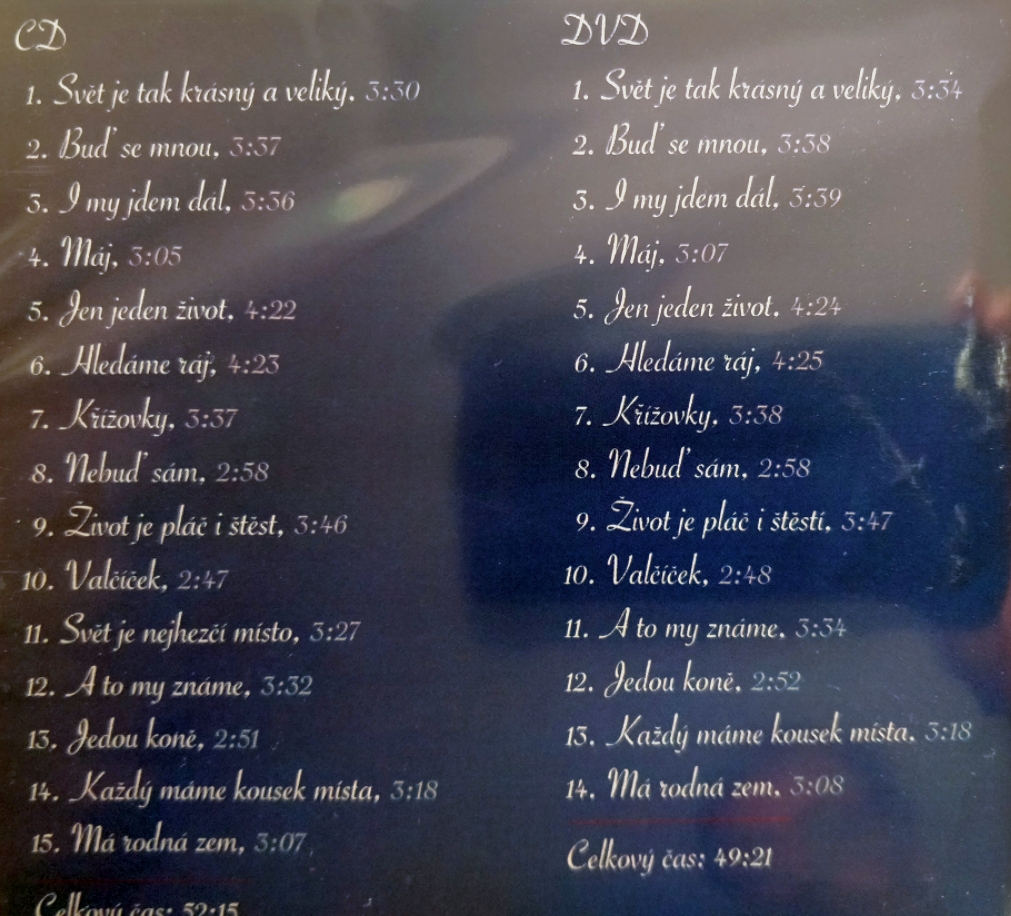 CD
1. Svět je tak krásný a veliký, 3:30
2. Buď se mnou, 3:37
3. I my jdem dál, 3:36
4. Máj, 3:05
5. Jen jeden život, 4:22
6. Hledáme ráj, 4:23
7. Křížovky, 3:37
8. Nebuď sám, 2:58
9. Život je pláč i štěst, 3:46
10. Valčíček, 2:47
11. Svět je nejhezčí místo, 3:27
12. A to my známe, 3:32
13. Jedou koně, 2:51
14. Každý máme kousek místa, 3:18
15. Má rodná zem, 3:07
Celkový čas: 52:15
DVD
1. Svět je tak krásný a veliký, 3:34
2. Buď se mnou, 3:38
3. I my jdem dál, 3:39
4. Máj, 3:07
5. Jen jeden život, 4:24
6. Hledáme ráj, 4:25
7. Křížovky, 3:38
8. Nebuď sám, 2:58
9. Život je pláč i štěstí, 3:47
10. Valčíček, 2:48
11. A to my známe, 3:34
12. Jedou koně, 2:52
13. Každý máme kousek místa, 3:18
14. Má rodná zem, 3:08
Celkový čas: 49:21